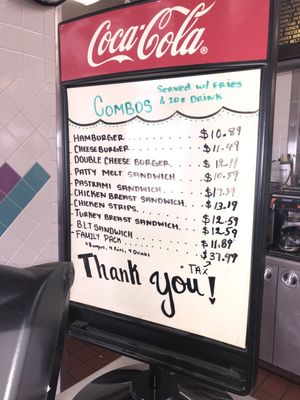 Coca-Cola
COMBOS
Served w/ Fries
& 20z Drink
HAMBURGER $10.89
CHEESEBURGER $11.49
DOUBLE CHEESE BURGER
PATTY MELT SANDWICH $10.59
PASTRAMI SANDWICH
CHICKEN BREAST SANDWICH $13.19
CHICKEN STRIPS
TURKEY BREAST SANDWICH $12.59
B.L.T SANDWICH $12.59
$11.89
FAMILY PACK $37.99
4 Burgers, 4 Fries, 4 Drinks
+ TAX
Thank you!